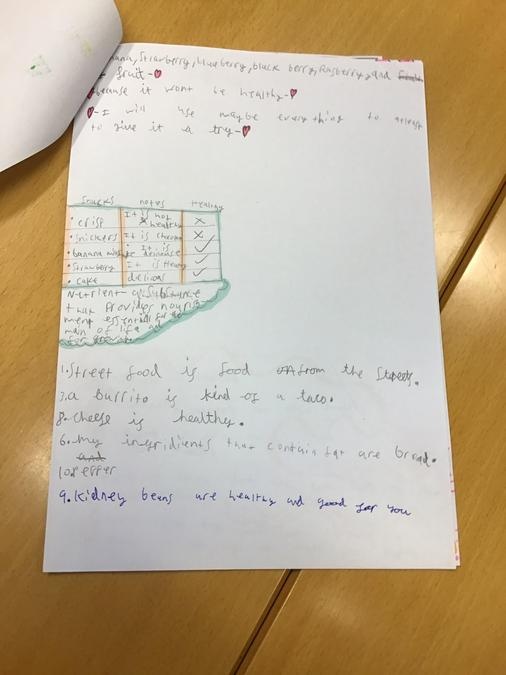 nana, Strawberry, blueberry, black berry, Rasberry, and
fruit-
because it wont be healthy-
-I will use maybe every thing to atleast
to give it a try-
Snacks notes Healthy
• crisp It is not healthy x
• Snickers It is x
• banana It is ✓
• Strawberry It is ✓
• cake delious ✓
Nutrient- a Substance
that Provides nourish
ment essential for the
main of life and
1. Street food is food from the Streets.
3. a burrito is kind of a taco.
8. Cheese is healthy.
6. My ingridients that contain fat are bread.
and
10. 
9. Kidney beans are healthy and good for you